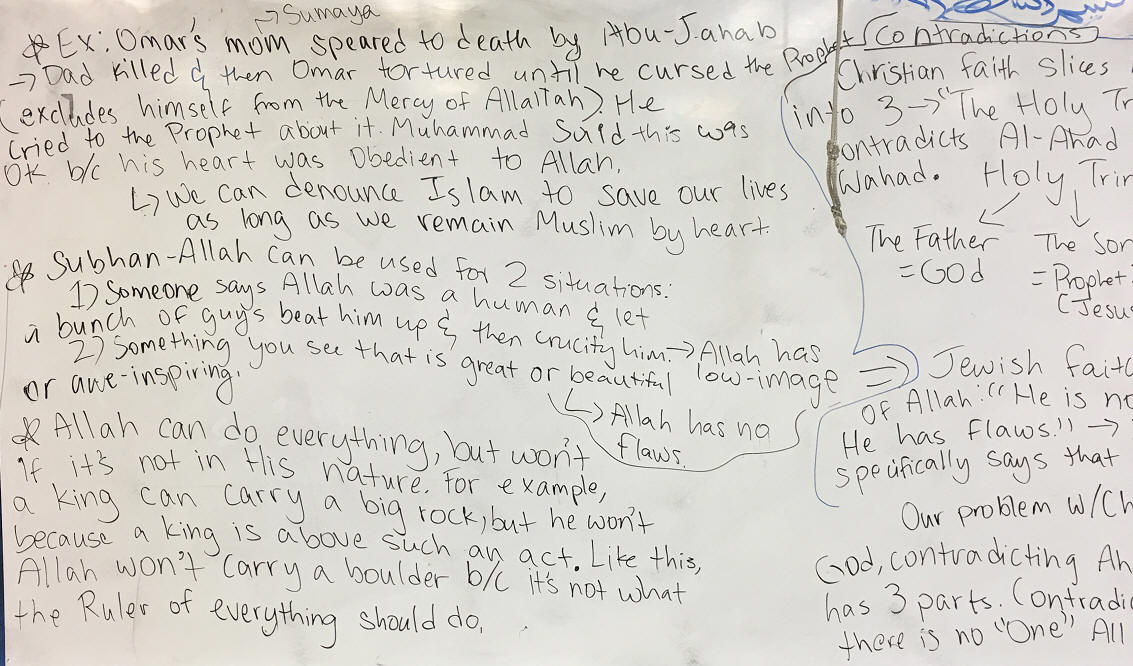 → Sumaya
* Ex: Omar's mom speared to death by Abu-Jahab
→ Dad killed & then Omar tortured until he cursed the Prophet
(excludes himself from the Mercy of Allah). He
cried to the Prophet about it. Muhammad said this was
OK b/c his heart was Obedient to Allah.
↳ We can denounce Islam to save our lives
as long as we remain Muslim by heart.
* Subhan-Allah can be used for 2 situations:
1) Someone says Allah was a human & let
a bunch of guys beat him up & then crucify him. → Allah has
low-image
2) Something you see that is great or beautiful
or awe-inspiring.
↳ Allah has no
flaws.
* Allah can do everything, but won't
if it's not in His nature. For example,
a king can carry a big rock, but he won't
because a king is above such an act. Like this,
Allah won't carry a boulder b/c it's not what
the Ruler of everything should do.
Contradictions
Christian faith slices
into 3 → "The Holy Tr
ontradicts Al-Ahad
Wahad. Holy Trin
The Father The Son
= God = Prophet
(Jesus
⇒ Jewish Faith
of Allah: "He is no
He has flaws!" →
specifically says that
Our problem w/Ch
God, contradicting Ah
has 3 parts. Contradic
there is no "One" All